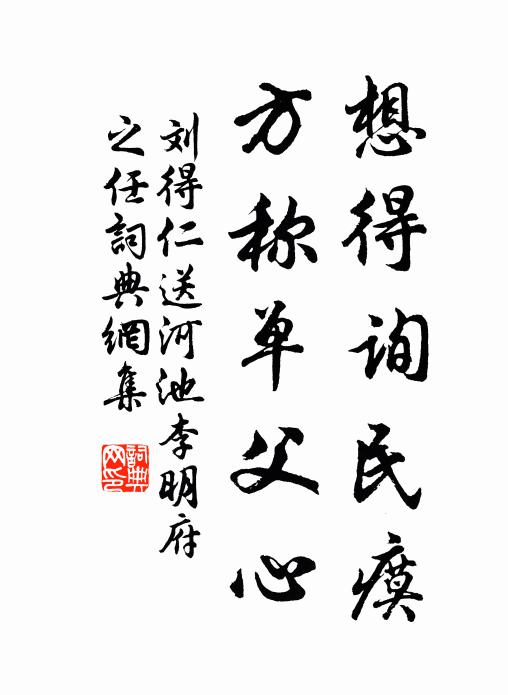 想得询民瘼
方称单父心
刘得仁送河池李明府
之任词典網集
詞典
网印